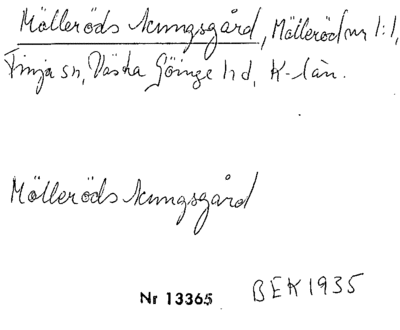 Mölleröds kungsgård, Mölleröd nr 1:1,
Finja sn, Västra Göinge hd, K-län.
Mölleröds kungsgård
Nr 13365 BEK1935